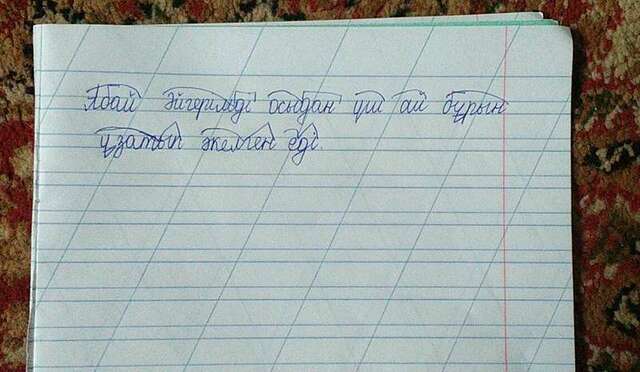 Абай Әйгерімді осыдан үш ай бұрын
ұзатып әкелген еді.